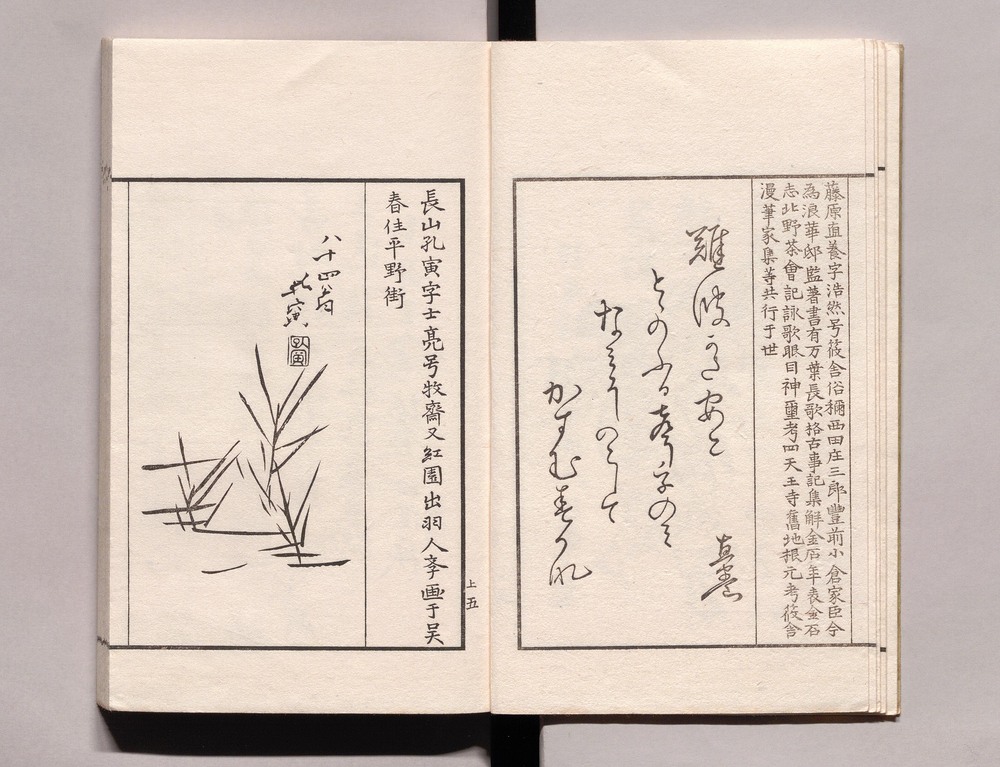 藤原直養字浩然号筱舎俗稱西田庄三郎豊前小倉家臣今
為浪華邸監著書有万葉長歌格古事記集解金石年表金石
志北野茶會記詠歌眼目神璽考四天王寺舊地根元考筱舎
漫筆家集等共行于世
直養
難波
かすむ
長山孔寅字士亮号牧齋又紅園出羽人学画于呉
春住平野街
八十四翁
孔寅
上五